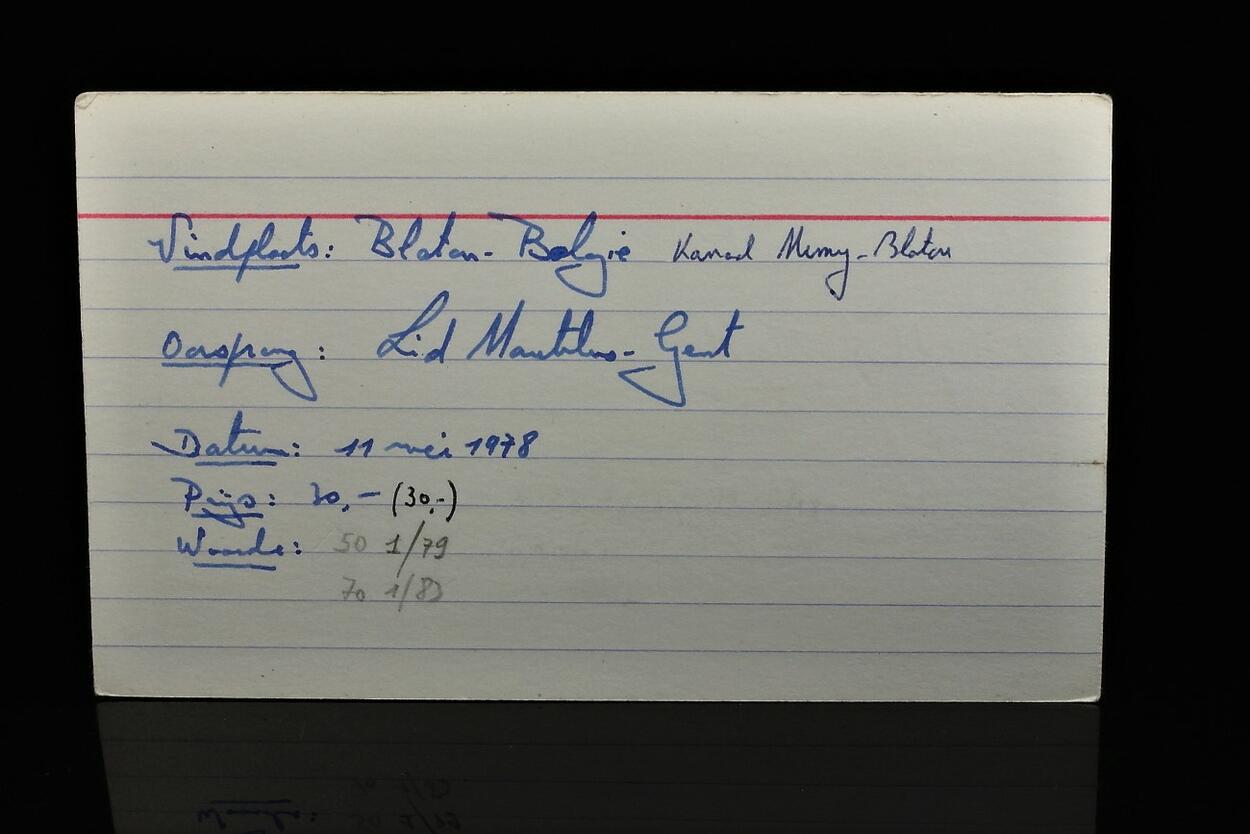 Vindplaats: Blaton - België Kanaal Nimy-Blaton
Oorsprong: Lid Nautilus - Gent
Datum: 11 mei 1978
Prijs: 30,- (30,-)
Waarde: 50 1/79
70 1/83